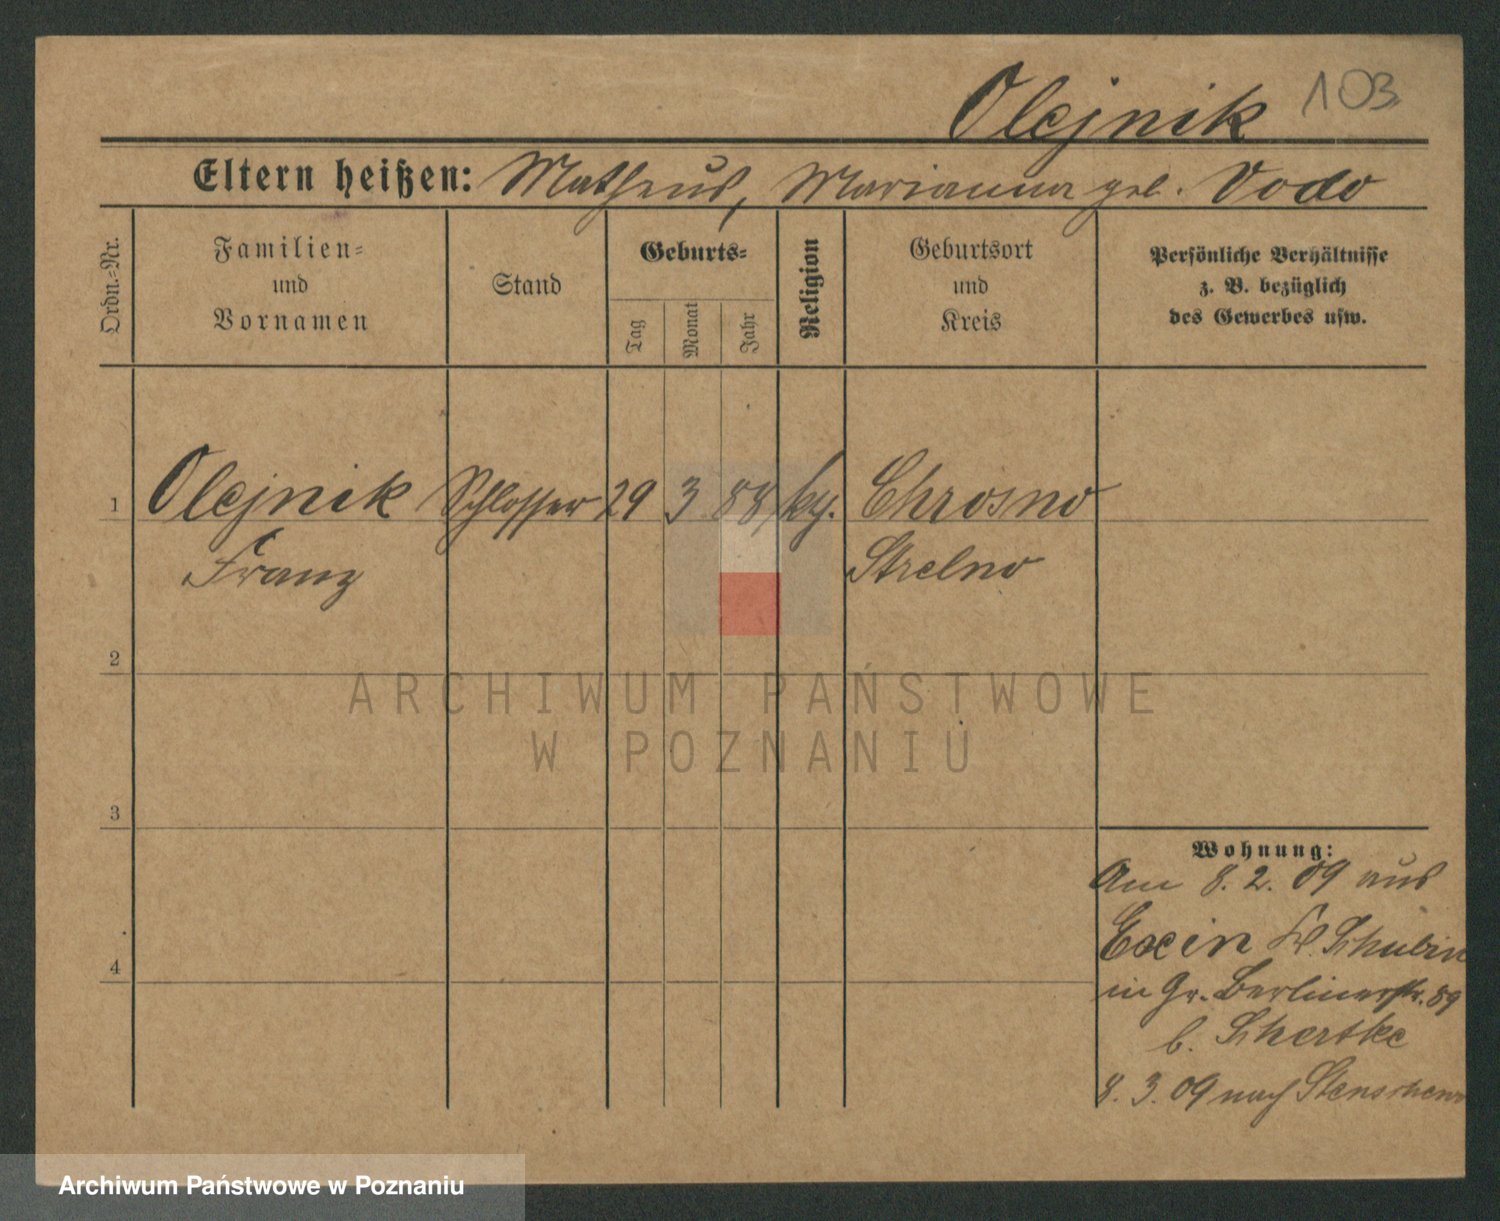 Olejnik 103
Eltern heißen: Matheus, Marianna geb. Vodo
Ordn.=Nr.
Familien=
und
Vornamen
Stand
Geburts=
Tag
Monat
Jahr
Religion
Geburtsort
und
Kreis
Persönliche Verhältnisse
z. B. bezüglich
des Gewerbes usw.
1 Olejnik Schlosser 29 3 88 kg. Chrosno
Franz Strelno
2
ARCHIWUM PAŃSTWOWE
W POZNANIU
3
Wohnung:
Am 8. 2. 09 aus
Exin Kr. Schubin
4
in Gr. Berlinerstr. 89
b.
8. 3. 09 nach
Archiwum Państwowe w Poznaniu